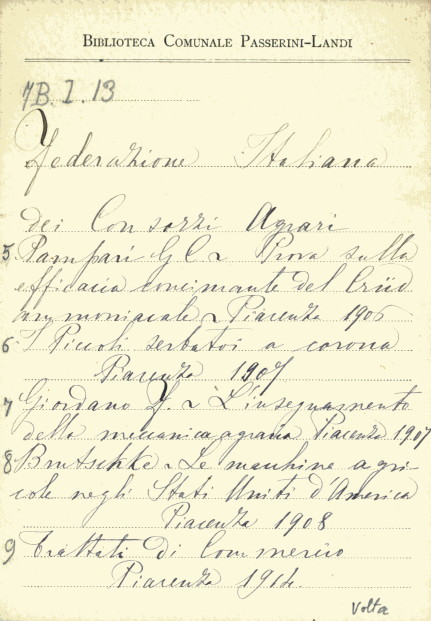 BIBLIOTECA COMUNALE PASSERINI-LANDI
7B. I. 13
Federazione Italiana
dei Consorzi Agrari
5 Pampari G C ~ Prova sulla
efficacia concimante del Crüd
ammoniacale ~ Piacenza 1906
6 I Piccoli serbatoi a corona
Piacenza 1907
7 Giordano F. ~ L'insegnamento
della meccanica agraria Piacenza 1907
8 Brutschke ~ Le macchine agri-
cole negli Stati Uniti d'America
Piacenza 1908
9 Trattati di Commercio
Piacenza 1914.
Volta